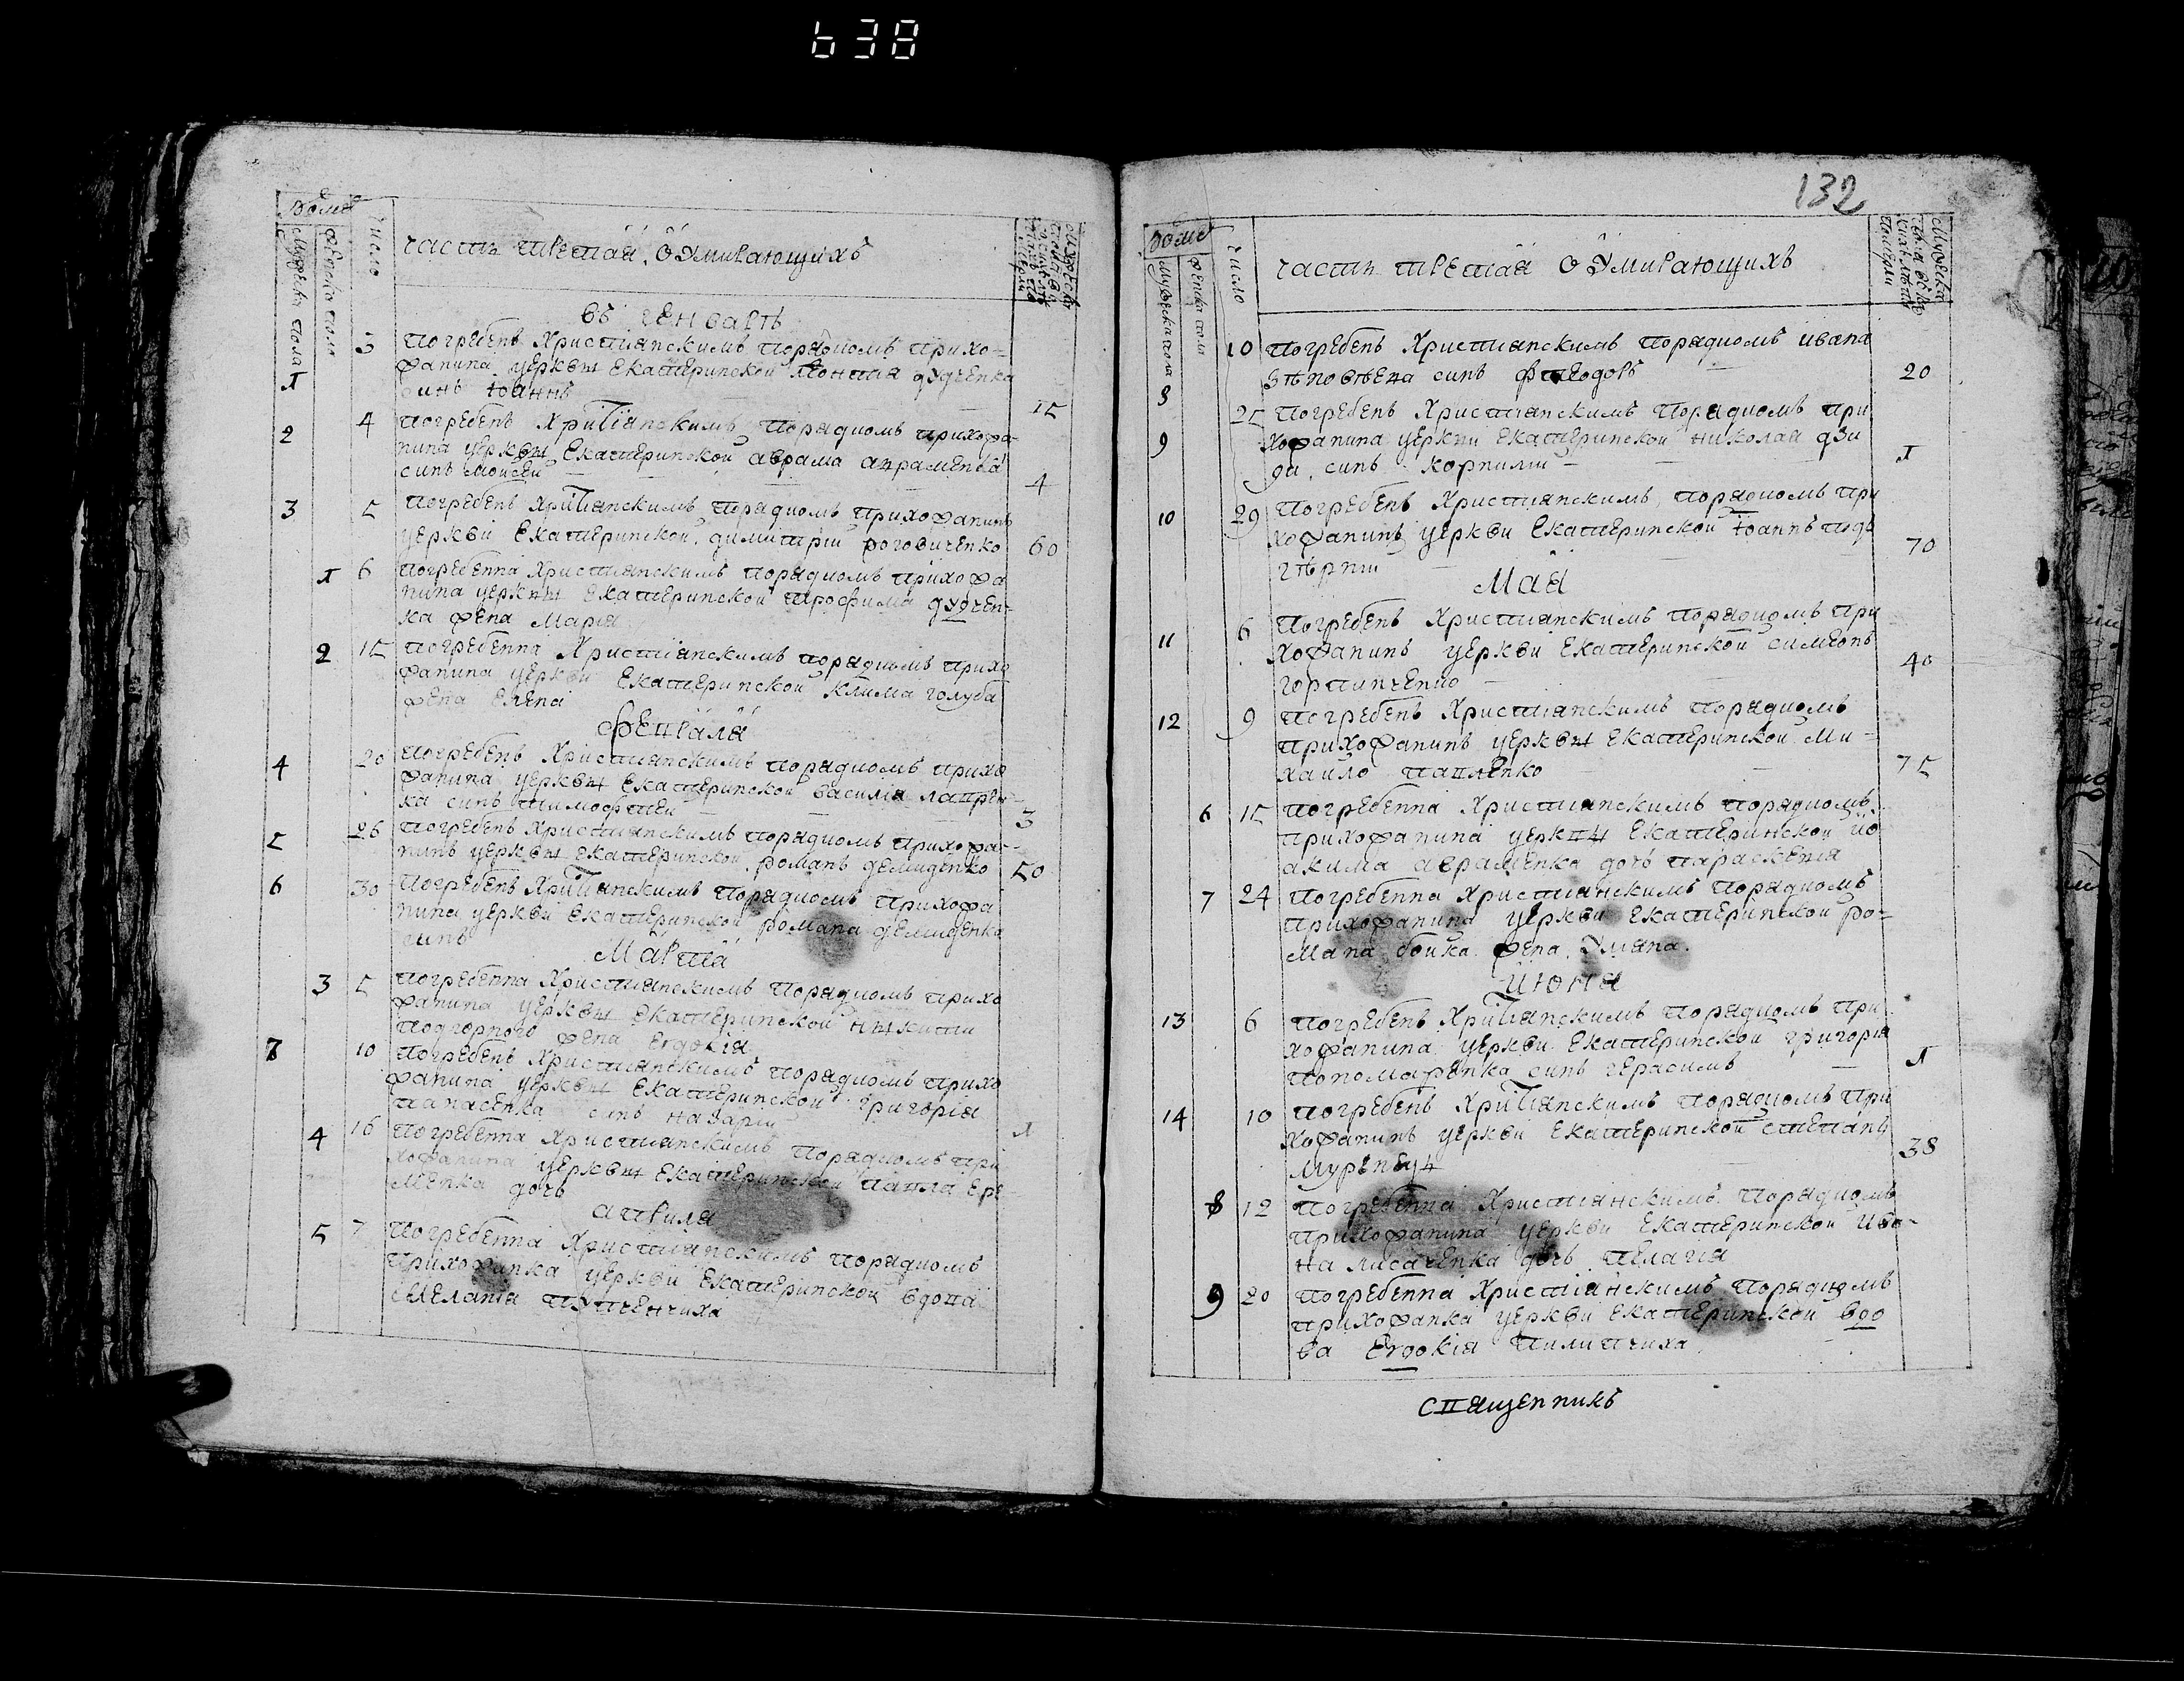 638
132
Числο
Мужеска пола
Женска пола
Часть третая о Умирающихъ
въ генварѣ
3 Погребенъ Христіанскимъ порядкомъ прихо-
1 жанина церкви Екатерінской Леонтия дудченка
синъ Іоаннъ 15
2 4 Погребенъ Христіанскимъ порядкомъ прихожа-
нина церкви Екатеринской аврама авраменка
синъ Моисей 4
3 5 Погребенъ Христіанскимъ порядкомъ прихожанинъ
церкви Екатеринской димитрій роговиченко 60
1 6 Погребенна Христіанскимъ порядкомъ прихожа
нина церкви Екатеринской трофима дудчен-
ка жена Марія
2 15 Погребенна Христіанскимъ порядкомъ прихо
жанина церкви Екатеринской Клима голуба
жена Елена
февраля
4 20 Погребенъ Христіанскимъ порядкомъ прихо
жанина церкви Екатеринской василія лаврен-
ка синъ тимофтей 3
5 26 Погребенъ Христіанскимъ порядкомъ прихожа-
нинъ церкви Екатеринской романъ демиденко 50
6 30 Погребенъ Христіанскимъ порядкомъ прихожа
нина церкви Екатеринской романа демиденка
синъ
Марта
3 5 Погребенна Христіанскимъ порядкомъ прихо
жанина церкви Екатеринской никити
подгорного жена Евдокія
7 10 Погребенъ Христіанскимъ порядкомъ прихо
жанина церкви Екатеринской григорія
панасенка синъ Назарій 1
4 16 Погребенна Христіанскимъ порядкомъ при
хожанина церкви Екатеринской павла Ере-
менка дочъ
априля
5 7 Погребенна Христіанскимъ порядкомъ
прихожанка церкви Екатерінской вдова
Мелания
Число
Мужеска пола
Женска пола
Часть третая о Умирающихъ
8 10 Погребенъ Христіанскимъ порядкомъ ивана
синъ фтеодоръ 20
9 25 Погребенъ Христіанскимъ порядкомъ при
хожанина церкви Екатеринской николая дзи
ди синъ корнилій 1
10 29 Погребенъ Христіанскимъ порядкомъ при
хожанинъ церкви Екатеринской Іоаннъ 70
Мая
11 6 Погребенъ Христіанскимъ порядкомъ при
хожанинъ церкви Екатеринской симеонъ 40
12 9 Погребенъ Христіанскимъ порядкомъ
прихожанинъ церкви Екатеринской Ми-
хайло павленко 75
6 15 Погребенна Христіанскимъ порядкомъ
прихожанина церкви Екатеринской йо
акима авраменка дочъ параскевия
7 24 Погребенна Христіанскимъ порядкомъ
прихожанина церкви Екатеринской ро-
мана бойка жена Уляна.
июня
13 6 Погребенъ Христіанскимъ порядкомъ при
хожанина церкви Екатеринской григорія
пономаренка синъ герасимъ 1
14 10 Погребенъ Христіанскимъ порядкомъ при
хожанинъ церкви Екатеринской степанъ 38
8 12 Погребенна Христіанскимъ порядкомъ
прихожанина церкви Екатеринской ива-
на лисаченка дочъ пелагія
9 20 Погребенна Христіанскимъ порядкомъ
прихожанка церкви Екатеринской вдо
ва Евдокія пилипчиха
священникъ